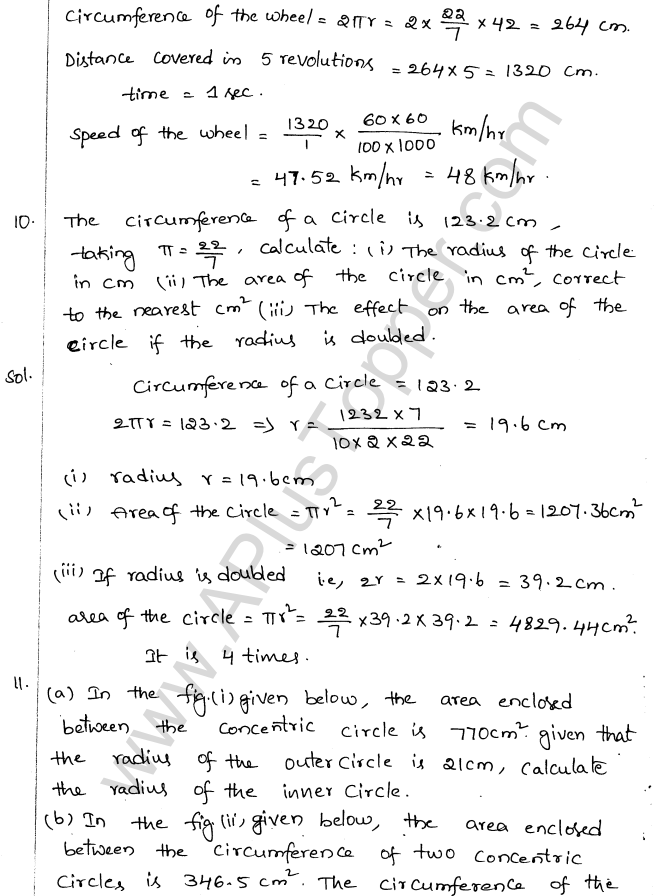 Circumference of the wheel = 2πr = 2 × 22/7 × 42 = 264 cm.
Distance covered in 5 revolutions = 264 × 5 = 1320 cm.
time = 1 sec.
Speed of the wheel = 1320/1 × (60 × 60)/(100 × 1000) km/hr
= 47.52 km/hr = 48 km/hr.
10. The circumference of a circle is 123.2 cm,
taking π = 22/7, calculate: (i) The radius of the circle
in cm (ii) The area of the circle in cm², correct
to the nearest cm² (iii) The effect on the area of the
circle if the radius is doubled.
Sol. Circumference of a circle = 123.2
2πr = 123.2 => r = (1232 × 7)/(10 × 2 × 22) = 19.6 cm
(i) radius r = 19.6cm
(ii) Area of the circle = πr² = 22/7 × 19.6 × 19.6 = 1207.36cm²
= 1207 cm²
(iii) If radius is doubled i.e, 2r = 2 × 19.6 = 39.2 cm.
area of the circle = πr² = 22/7 × 39.2 × 39.2 = 4829.44cm².
It is 4 times.
11. (a) In the fig.(i) given below, the area enclosed
between the concentric circle is 770cm². given that
the radius of the outer circle is 21cm, calculate
the radius of the inner Circle.
(b) In the fig.(ii) given below, the area enclosed
between the circumference of two concentric
Circles is 346.5 cm². The circumference of the
www.APlusTopper.com